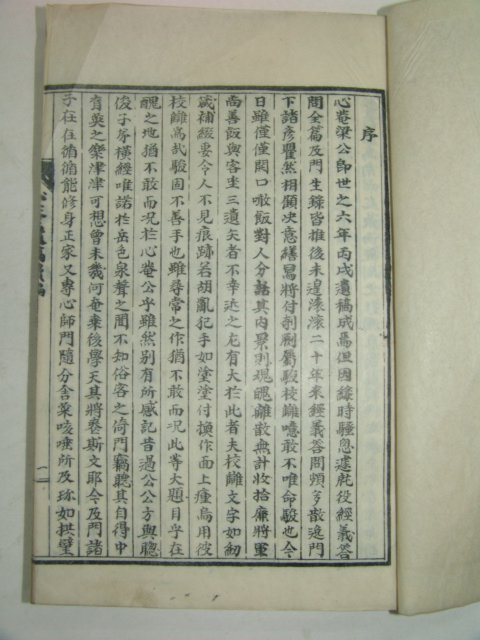 序
心菴梁公卽世之六年丙戌遺稿成焉但因錄時騷怱遽就役經義答
問全篇及門生錄皆推後未遑滾滾二十年來經義答問頗多散逸門
下諸彦瞿然相顧决意繕寫將付剞劂屬駿校讎噫敢不唯命駿也今
日雖僅僅開口噉飯對人分話其內累則魂醜離散無計收拾廉將軍
尙善飯與客坐三遺矢者不幸近之尤有大於此者夫校讎文字如紉
箴補綴要令人不見痕跡若胡亂犯手如塗塗付橫作面上瘇烏用彼
校讎爲哉駿固不善手也雖尋常之作猶不敢而况此等大題目乎在
醜之地猶不敢而况於心菴公乎雖然别有所感記昔過公公方與聰
俊子弟橫經唯諾於岳色泉聲之間不知俗客之倚門竊聽其自得中
育英之樂津津可想曾未幾何奄棄後學天其將喪斯文耶今及門諸
子在在循循能修身正家又專心師門隨分舍菜咳唾所及珎如拱璧